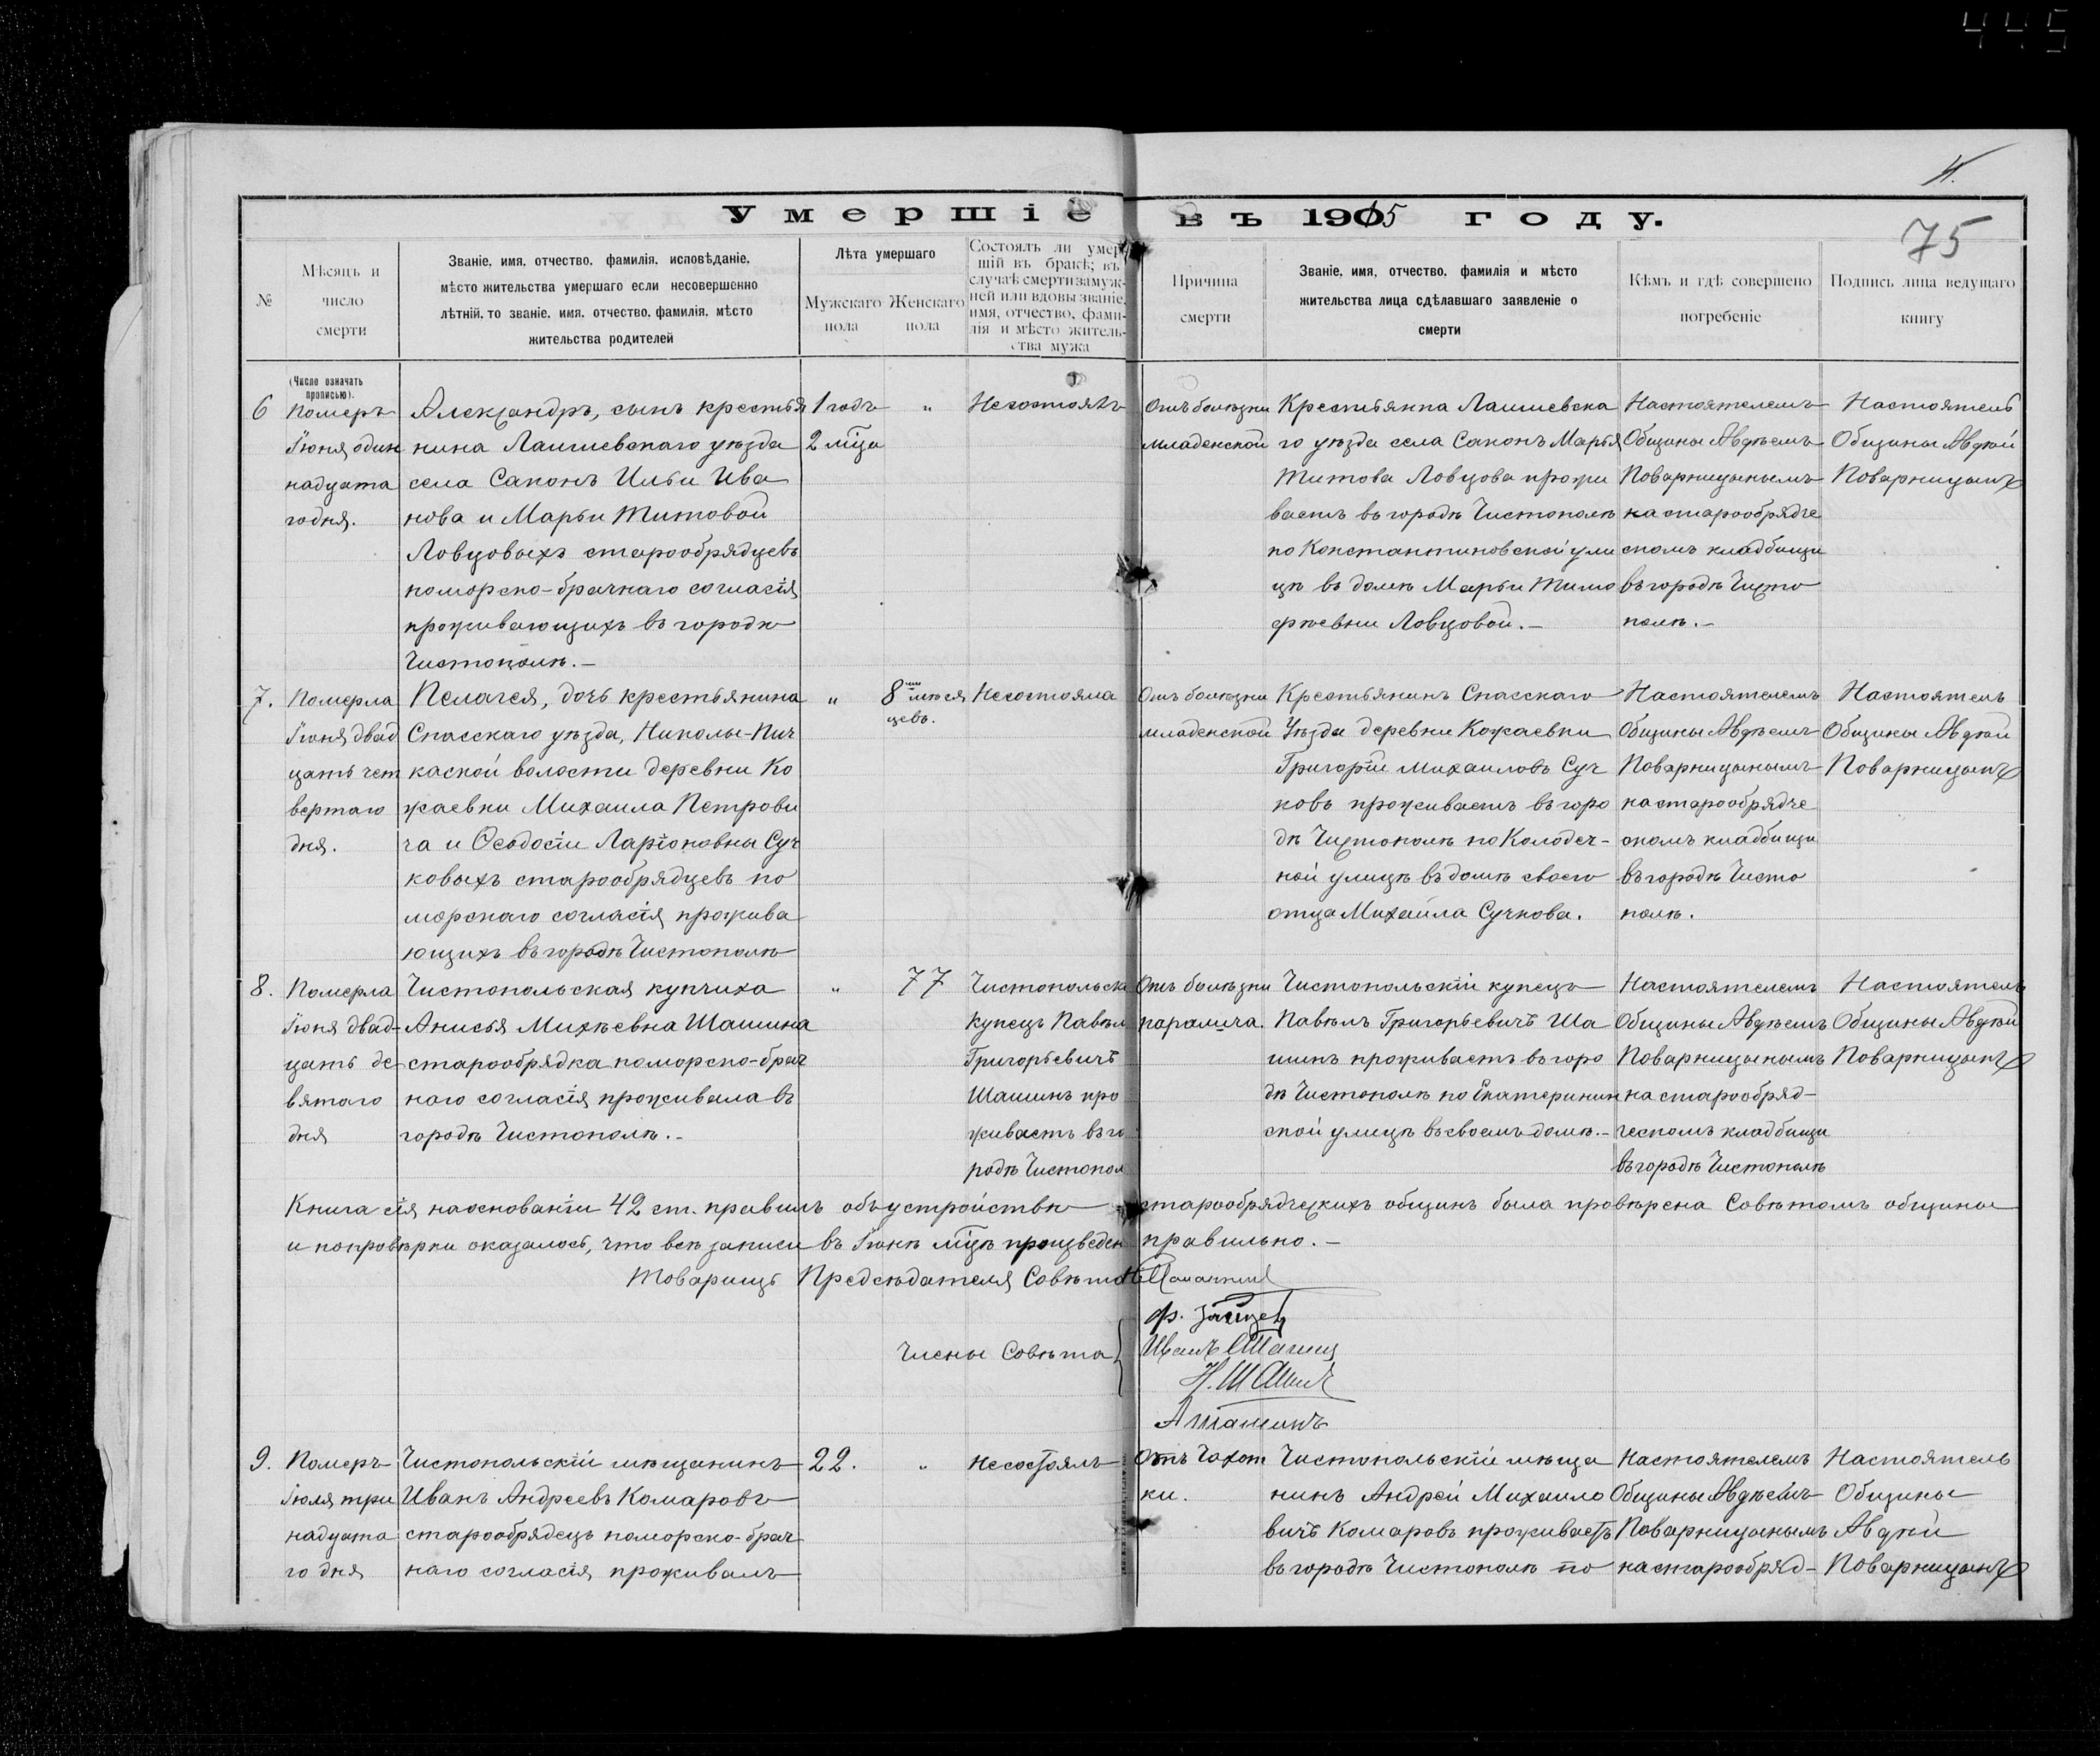 445
4.
Умершіе въ 1915 году.
75
№
Мѣсяцъ и
число
смерти
Званіе, имя, отчество, фамилія, исповѣданіе,
мѣсто жительства умершаго если несовершенно
лѣтній, то званіе, имя, отчество, фамилія, мѣсто
жительства родителей
Лѣта умершаго
Мужскаго
пола
Женскаго
пола
Состоялъ ли умер-
шій въ бракѣ; въ
случаѣ смерти замуж-
ней или вдовы званіе,
имя, отчество, фами-
лія и мѣсто житель-
ства мужа
Причина
смерти
Званіе, имя, отчество, фамилія и мѣсто
жительства лица сдѣлавшаго заявленіе о
смерти
Кѣмъ и гдѣ совершено
погребеніе
Подпись лица ведущаго
книгу
(Число означать
прописью).
6
Померъ
Іюня один
надцата
го дня.
Александръ, сынъ крестья
нина Лаишевскаго уѣзда
села Саконъ Ильи Ива
нова и Марьи Титовой
Ловцовыхъ старообрядцевъ
поморско-брачнаго согласія
проживающихъ въ городѣ
Чистополѣ.—
1 годъ
2 мѣца
"
Несостоялъ
Отъ болѣзни
младенской
Крестьянка Лаишевска
го уѣзда села Саконъ Марья
Титова Ловцова прожи
ваетъ въ городѣ Чистополѣ
по Константиновской ули
цѣ въ домѣ Марьи Тимо
феевны Ловцовой.—
Настоятелемъ
Общины Авдѣемъ
Поварницынымъ
на старообрядче
скомъ кладбищи
въ городѣ Чисто
полѣ.—
Настоятель
Общины Авдѣй
Поварницынъ
7.
Померла
Іюня двад
цать чет
вертаго
дня.
Пелагея, дочь крестьянина
Спасскаго уѣзда, Николы-Пич
каской волости деревни Ко
жаевки Михаила Петрови
ча и Ѳеодосіи Ларіоновны Суч
ковыхъ старообрядцевъ по
морскаго согласія прожива
ющихъ въ городѣ Чистополѣ
"
8ми мѣся
цевъ.
Несостояла
Отъ болѣзни
младенской
Крестьянинъ Спасскаго
Уѣзда деревни Кожаевки
Григорій Михаиловъ Суч
ковъ проживаетъ въ горо
дѣ Чистополѣ по Колодеч-
ной улицѣ въ домѣ своего
отца Михаила Сучкова.
Настоятелемъ
Общины Авдѣемъ
Поварницынымъ
на старообрядче
скомъ кладбищи
въ городѣ Чисто
полѣ.
Настоятель
Общины Авдѣй
Поварницынъ
8.
Померла
Іюня двад-
цать де
вятаго
дня
Чистопольская купчиха
Анисья Михѣевна Шашина
старообрядка поморско-брач
наго согласія проживала въ
городѣ Чистополѣ.—
"
77
Чистопольск
купецъ Павѣл
Григорьевичъ
Шашинъ про
живаетъ въ го
родѣ Чистопол
Отъ болѣзни
паралича.
Чистопольскій купецъ
Павѣлъ Григорьевичъ Ша
шинъ проживаетъ въ горо
дѣ Чистополѣ по Екатеринин
ской улицѣ въ своемъ домѣ.—
Настоятелемъ
Общины Авдѣемъ
Поварницынымъ
на старообряд-
ческомъ кладбищи
въ городѣ Чистополѣ
Настоятель
Общины Авдѣй
Поварницынъ
Книга сія на основаніи 42 ст. правилъ объ устройствѣ старообрядческихъ общинъ была провѣрена Совѣтомъ общины
и по провѣрки оказалось, что всѣ записи въ Іюнѣ мѣцѣ произведен правильно.—
Товарищъ Предсѣдателя Совѣта
Члены Совѣта
Ф. Зайцев
Иванъ Шашин
Н. Шашинъ
А Шашинъ
9.
Померъ
Іюля три
надцата
го дня
Чистопольскій мѣщанинъ
Иванъ Андреевъ Комаровъ
старообрядецъ поморско-брач
наго согласія, проживалъ
22.
"
Несостоялъ
Отъ Чахот
ки.
Чистопольскій мѣща
нинъ Андрей Михаило
вичъ Комаровъ проживаетъ
въ городѣ Чистополѣ по
Настоятелемъ
Общины Авдѣемъ
Поварницынымъ
на старообряд-
Настоятель
Общины
Авдѣй
Поварницынъ